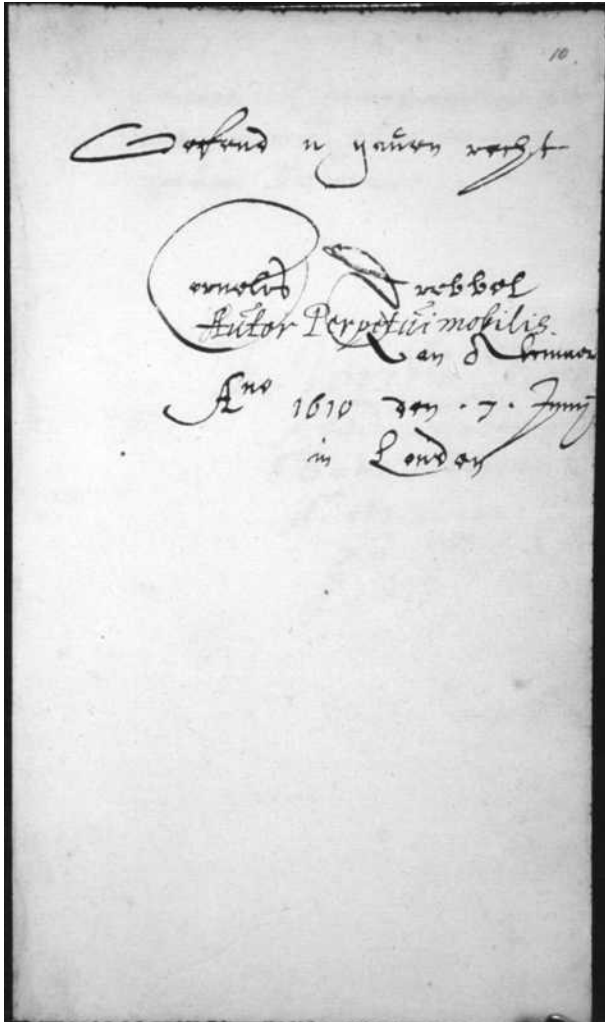 10
Oefend u gaūen recht
Cornelis Drebbel
Autor Perpetui mobilis.
Van Alcmaer
Ano 1610 den . 7 . Junij
in Londen